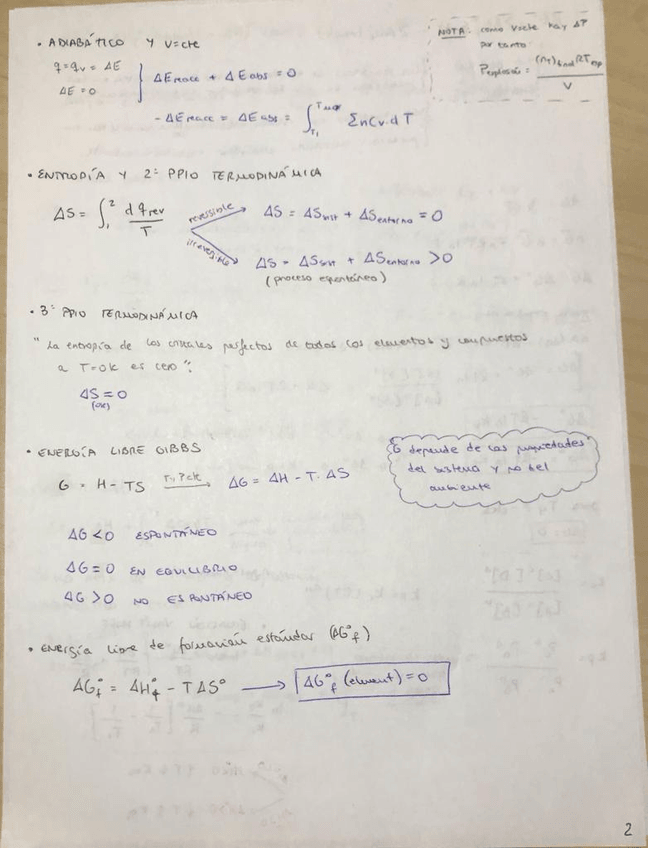 • ADIABÁTICO Y V=cte
NOTA: como V=cte hay ΔP
por tanto:
P explosión = (n_T)final R T exp / V
q = q_v = ΔE
ΔE = 0
ΔE reacc + ΔE abs = 0
- ΔE reacc = ΔE abs = ∫_{T1}^{T max} Σ n Cv d T
• ENTROPÍA Y 2º PPIO TERMODINÁMICA
ΔS = ∫_1^2 d q rev / T
reversible
ΔS = ΔS sist + ΔS entorno = 0
irreversible
ΔS = ΔS sist + ΔS entorno > 0
(proceso espontáneo)
• 3º PPIO TERMODINÁMICA
" La entropía de los cristales perfectos de todos los elementos y compuestos
a T=0K es cero ".
ΔS = 0
(0K)
• ENERGÍA LIBRE GIBBS
G = H - TS T, P cte → ΔG = ΔH - T · ΔS
G depende de las propiedades
del sistema y no del
ambiente
ΔG < 0 ESPONTÁNEO
ΔG = 0 EN EQUILIBRIO
ΔG > 0 NO ESPONTÁNEO
• ENERGÍA libre de formación estándar (ΔG°f)
ΔG_f° = ΔH_f° - T ΔS° → ΔG°_f (element) = 0
2